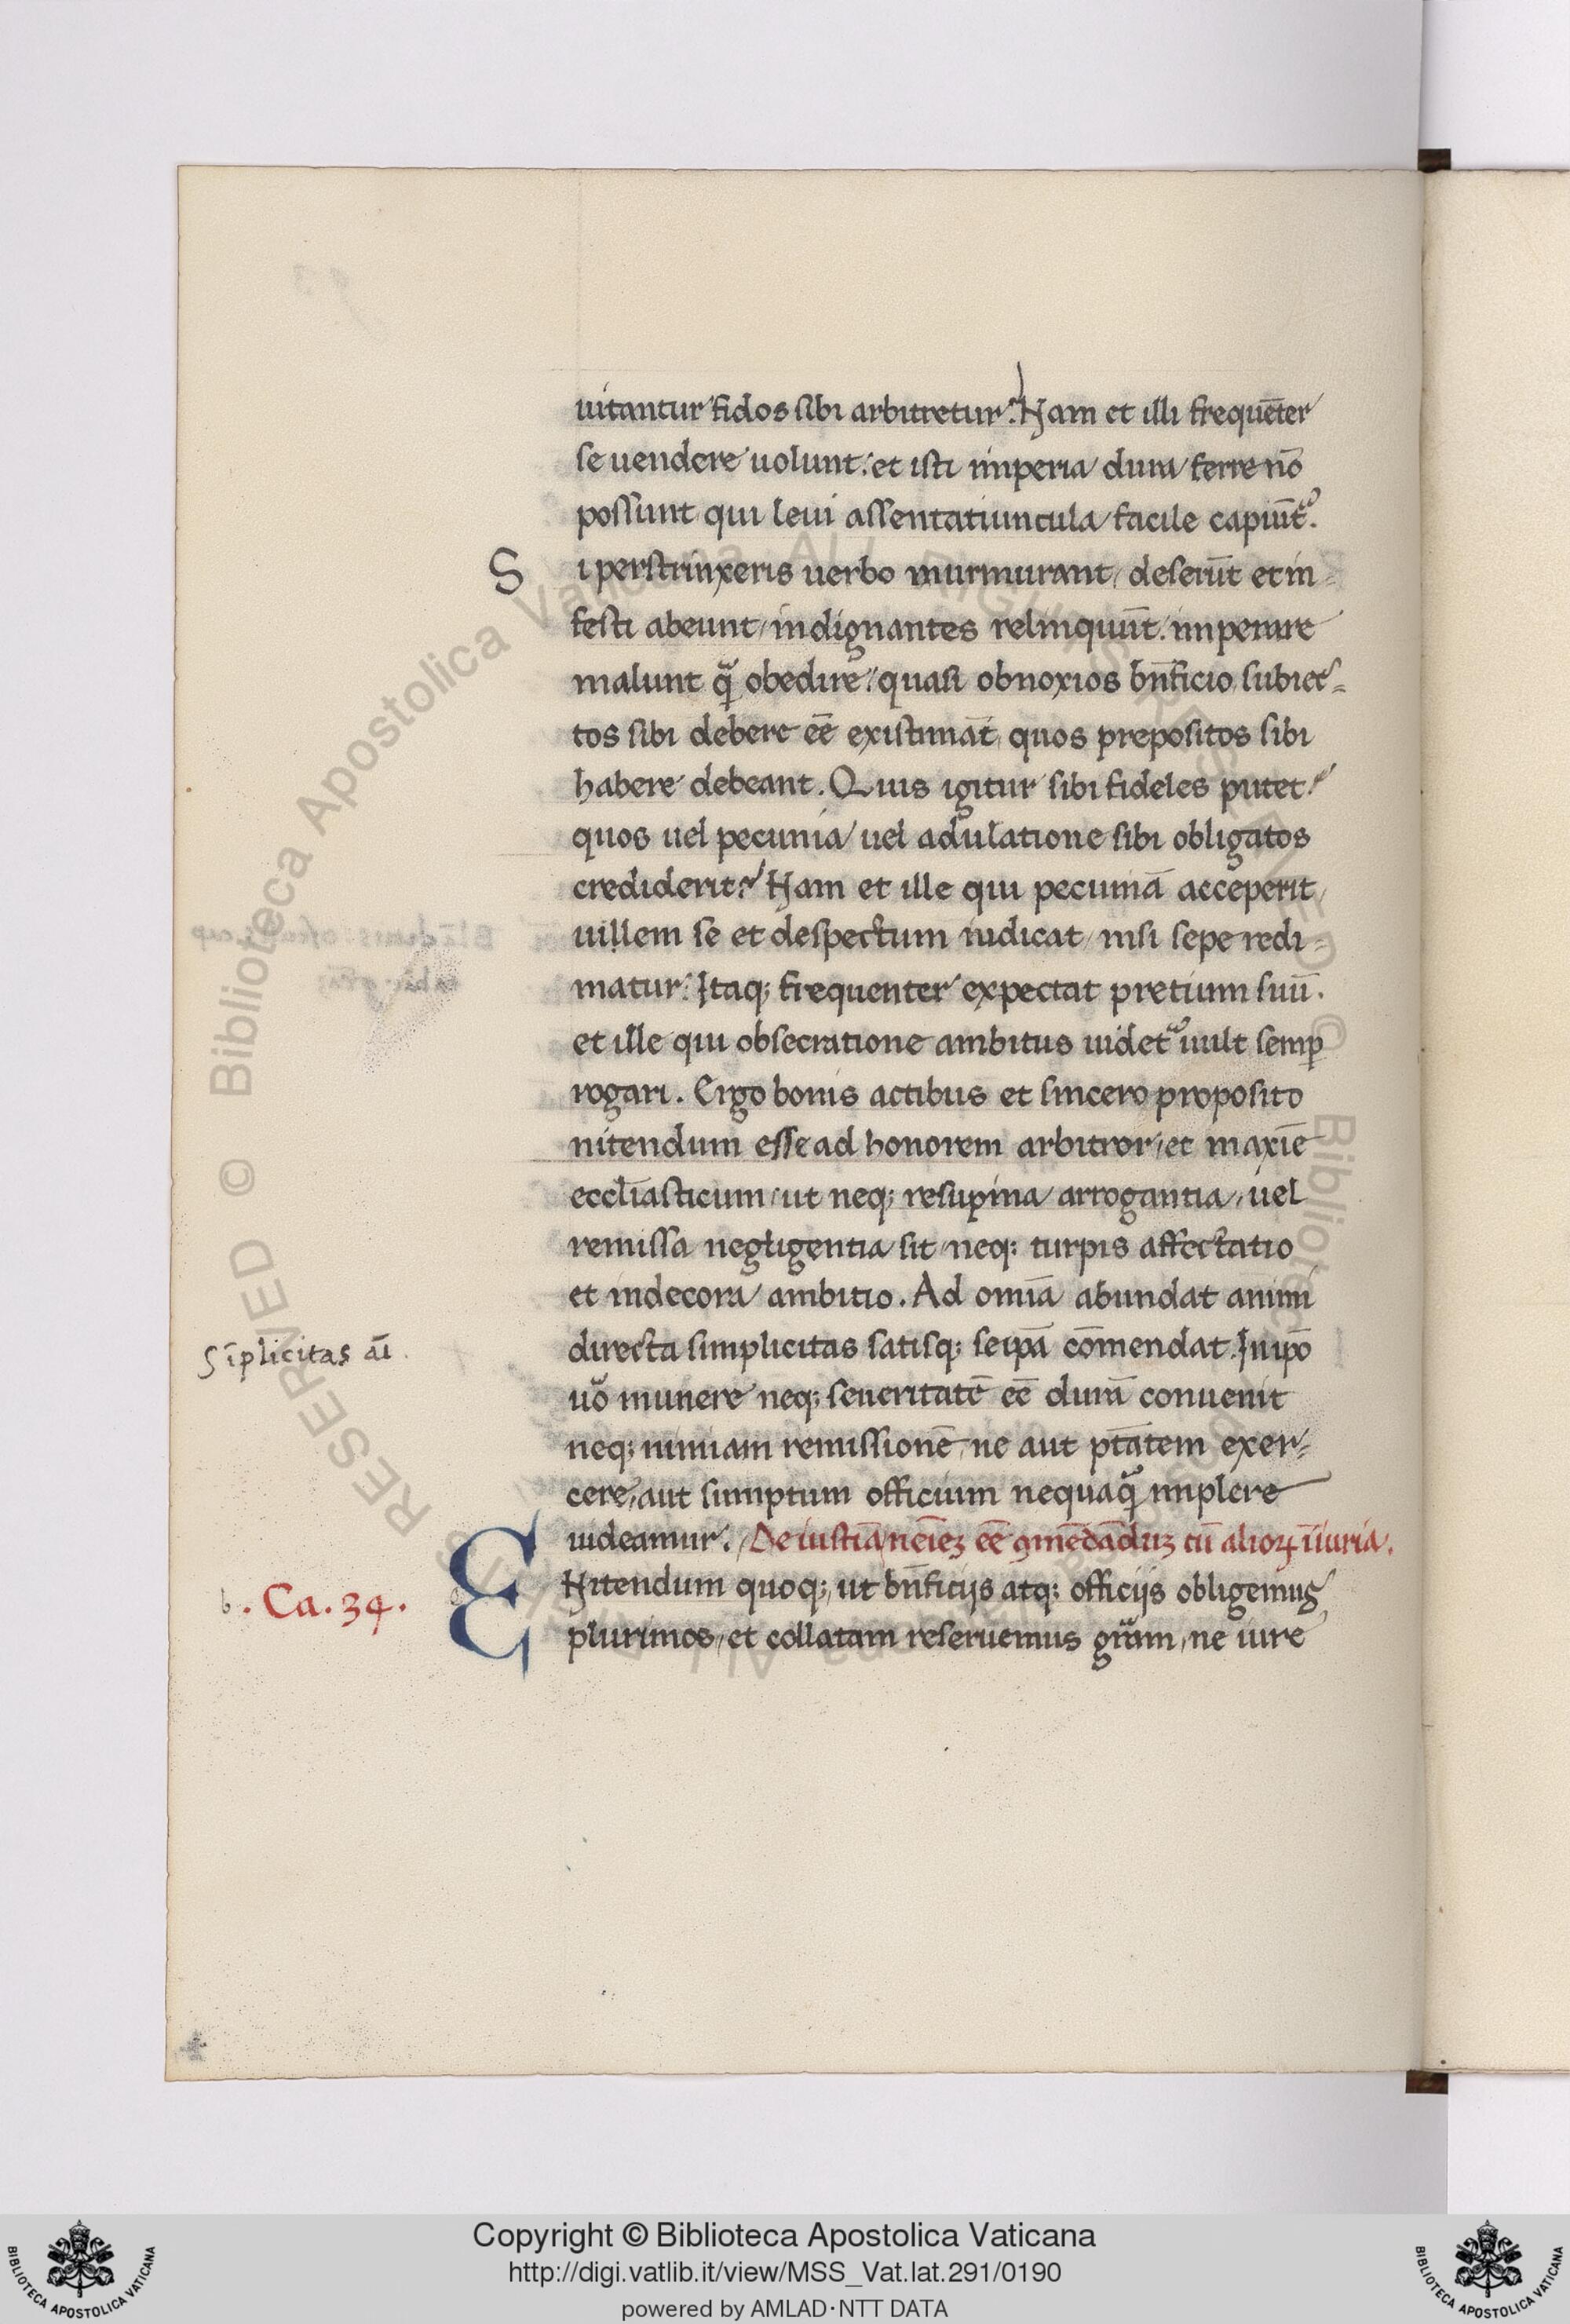 uitantur fidos sibi arbitretur? Nam et illi frequēter
se uendere uolunt: et isti imperia dura ferre nō
possunt qui leui assentatiuncula facile capiūt᷑.
S i perstrinxeris uerbo murmurant, deserūt et in-
festi abeunt, indignantes relinquūt. imperare
malunt q̄ obedire: quasi obnoxios bn̄ficio subiec-
tos sibi debere eē existimāt, quos prepositos sibi
habere debeant. Quis igitur sibi fideles putet?
quos uel pecunia uel adulatione sibi obligatos
crediderit? Nam et ille qui pecuniā acceperit,
uillem se et despectum iudicat, nisi sepe redi-
matur: Itaq; frequenter expectat pretium suū.
et ille qui obsecratione ambitus uidet᷑ uult semꝑ
rogari. Ergo bonis actibus et sincero proposito
nitendum esse ad honorem arbitror, et maxīe
eccl̄iasticum, ut neq; resupina arrogantia, uel
remissa negligentia sit, neq; turpis affectatio
et indecora ambitio. Ad om̄ia abundat animi
directa simplicitas satisq; seip̄ā cōmendat. In ip̄o
Sīplicitas aı̄.
uō munere neq; seueritatē eē durā conuenit
neq; nimiam remissionē, ne aut pt̄atem exer-
cere, aut sumptum officium nequaq̄ implere
uideamur. De iustīa nēiēz eē ꝯmēdādūz cū alioꝝ īiuria.
b. Ca. 34.
E Nitendum quoq;, ut bn̄ficijs atq; officijs obligemus
plurimos, et collatam reseruemus gr̄am, ne iure
Copyright © Biblioteca Apostolica Vaticana
http://digi.vatlib.it/view/MSS_Vat.lat.291/0190
powered by AMLAD·NTT DATA
BIBLIOTECA APOSTOLICA VATICANA
BIBLIOTECA APOSTOLICA VATICANA